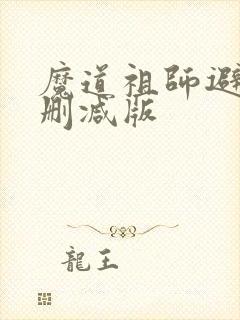 魔道祖師避
删减版
龍王